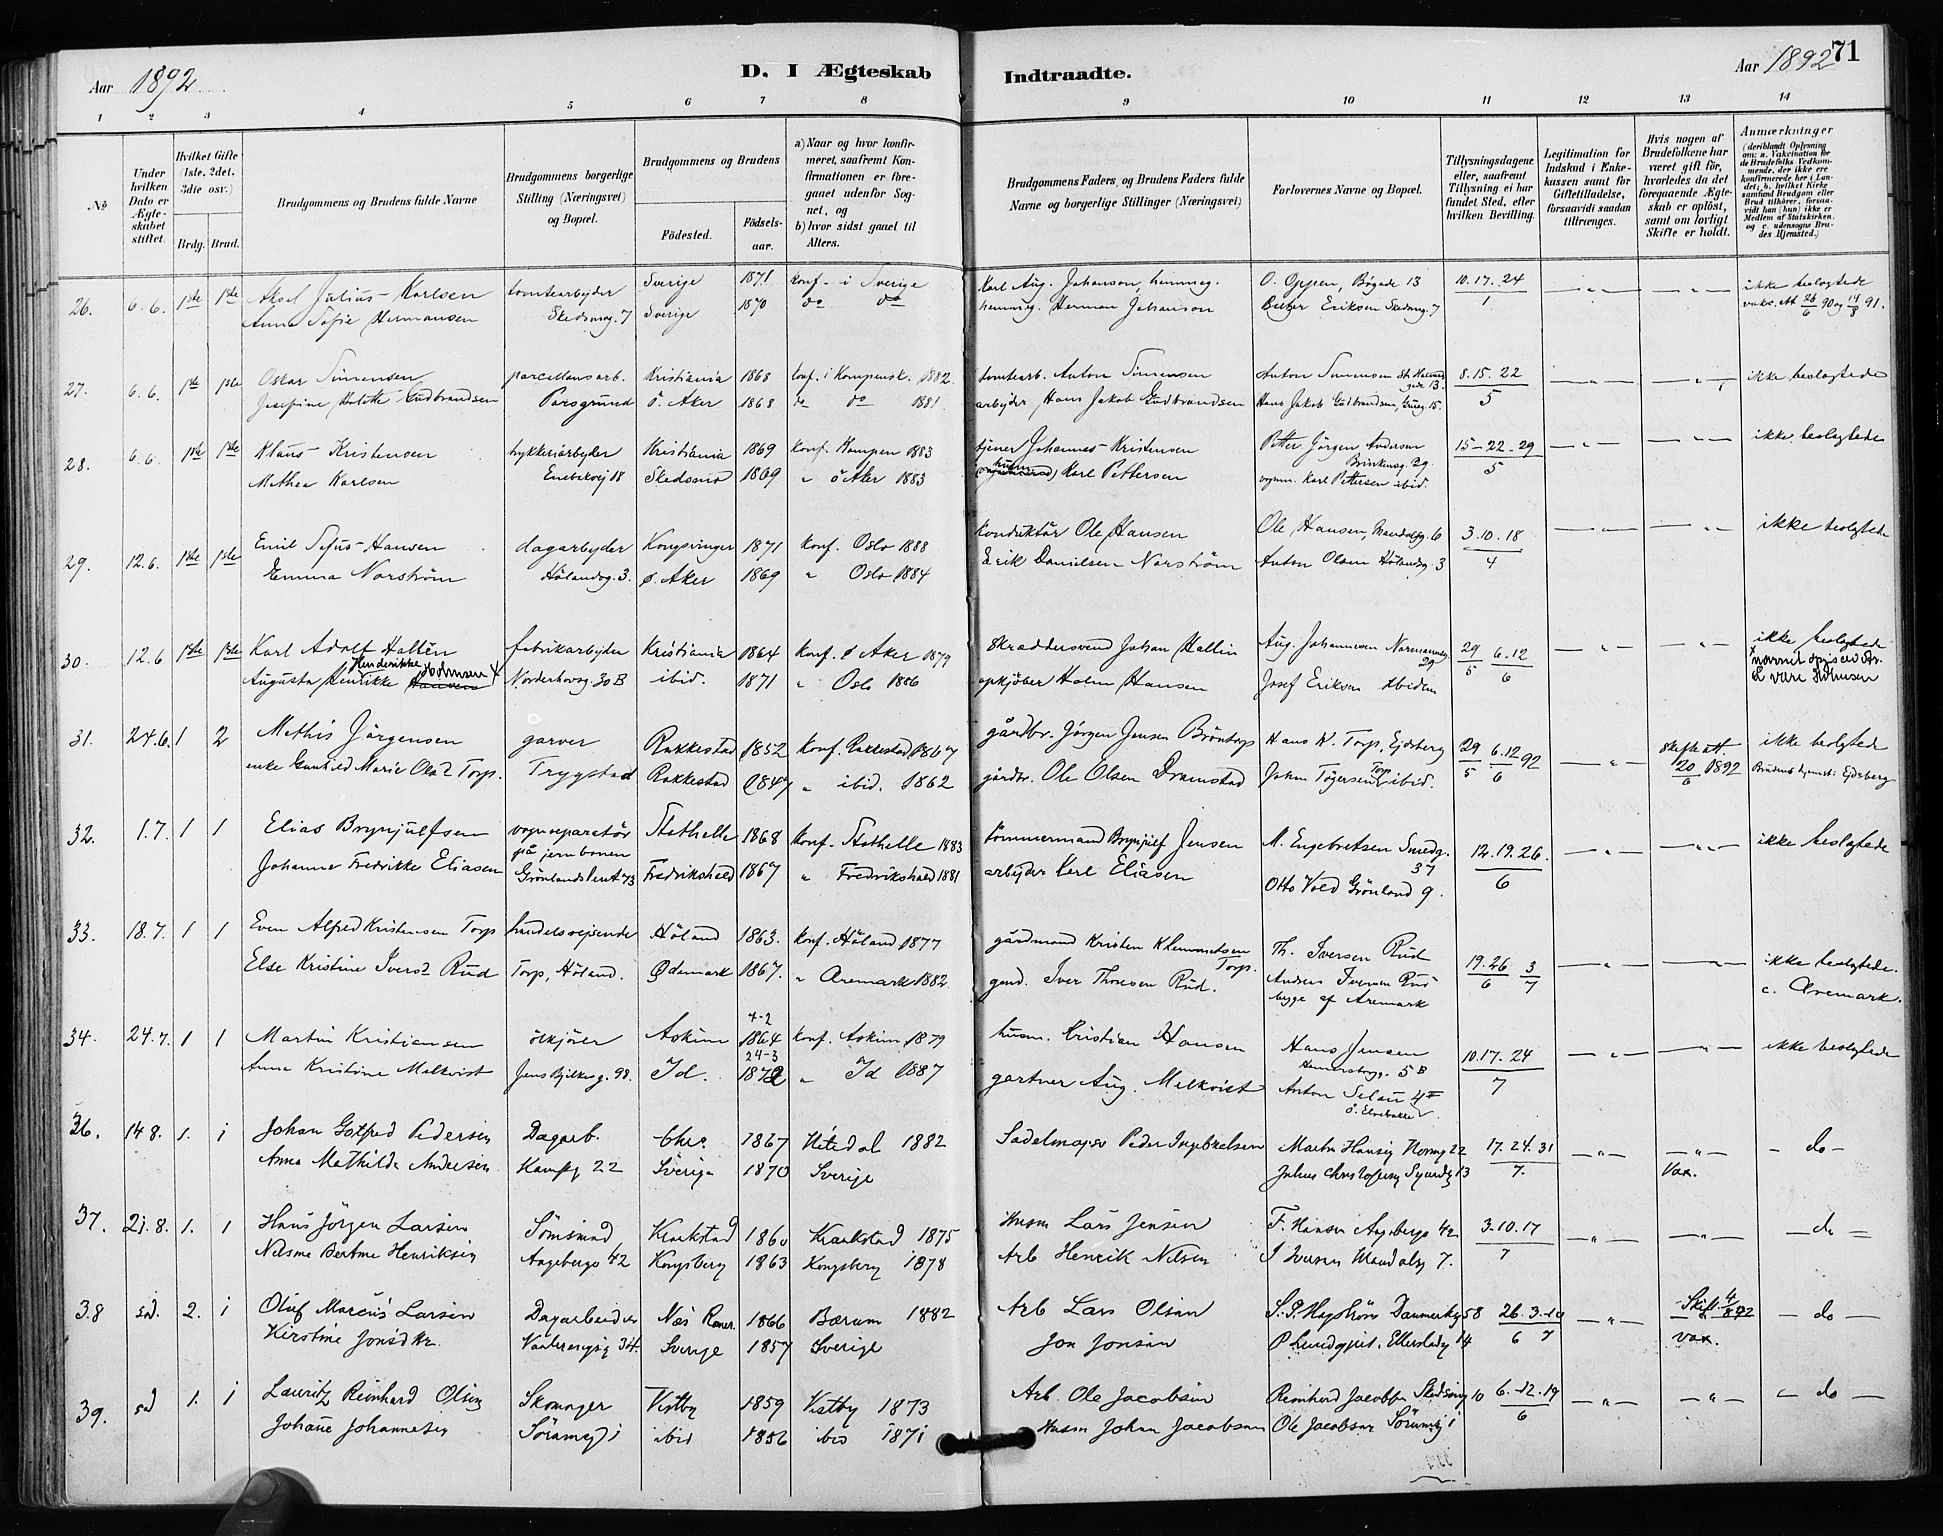 Aar 1892.
D. I Ægteskab Indtraadte.
Aar 1892 71
1 2 3 4 5 6 7 8 9 10 11 12 13 14
No
Under hvilken Dato er Ægteskabet stiftet.
Hvilket Gifte (1ste, 2det, 3die osv.)
Brdg. Brud.
Brudgommens og Brudens fulde Navne
Brudgommens borgerlige Stilling (Næringsvei) og Bopæl.
Brudgommens og Brudens
Fødested. Fødselsaar.
a) Naar og hvor konfirmeret, saafremt Konfirmationen er foregaaet udenfor Sognet, og
b) hvor sidst gaaet til Alters.
Brudgommens Faders og Brudens Faders fulde Navne og borgerlige Stillinger (Næringsvei)
Forlovernes Navne og Bopæl.
Tillysningsdagene eller, saafremt Tillysning ei har fundet Sted, efter hvilken Bevilling.
Legitimation for Indskud i Enkekassen samt for Giftetilladelse, forsaavidt saadan tiltrænges.
Hvis nogen af Brudefolkene har været gift før, hvorledes da det foregaaende Ægteskab er opløst, samt om lovligt Skifte er holdt.
Anmærkninger (deriblandt Oplysning om: a. Vakcination for de Brudefolks Vedkommende, der ikke ere konfirmerede her i Landet; b. hvilket Kirkesamfund Brudgom eller Brud tilhører, forsaavidt han (hun) ikke er Medlem af Statskirken, og c. udensogns Brudes Hjemsted.)
26. 6.6. 1ste 1ste Aksel Julius Karlsen tomtearbyder Sverige 1871 konf. i Sverige Karl Aug. Johanson, hemmeg. O. Oppen, Bøgade 13 10.17.24/1 — " — — " — ikke beslogtede
Anna Sofie Hermansen Skedsmog. 7 Sverige 1870 do do hemmeg. Herman Johanson Eriksen Skedsmog. 7 vaks. att 26/6 90 og 14/8 91.
27. 6.6. 1ste 1ste Oskar Simensen parcellansarb. Kristiania 1868 konf. i Kampensk. 1882. tomtearb. Anton Simensen Anton Simensen St. Halvardsgde 13. 8.15.22/5 — " — — " — ikke beslogtede
Josefine Gudbrandsen Porsgrund ö. Aker 1868 do do 1881. arbyder Hans Jakob Gudbrandsen Hans Jakob Gudbrandsen, 15.
28. 6.6. 1ste 1ste Klaus Kristensen trykkeriarbyder Kristiania 1869 konf. Kampen 1883 tjener Johannes Kristensen Petter Jörgen Andersen Brinkensg. 29. 15-22-29/5 — " — — " — ikke beslogtede
Mathea Karlsen Enebakvej 18 Skedsmo 1869 " ö Aker 1883 husm. Karl Pettersen vognm. Karl Pettersen ibid.
29. 12.6. 1ste 1ste Emil Sofus Hansen dagarbyder Kongsvinger 1871 konf. Oslo 1888 konduktör Ole Hansen Ole Hansen, Mandalsg. 6 3.10.18/4 — " — — " — ikke beslogtede
Emma Norström Hölandsg. 3. ø. Aker 1869 " Oslo 1884 Erik Danielsen Norström Anton Olsen Hölandsg. 3
30. 12.6 1ste 1ste Karl Adolf Hallèn fabrikarbyder Kristiania 1864 konf. ø Aker 1879 skraddersvend Johan Hallin Aug. Johannesen Normannsg. 29 29/5 6.12/6 — " — ikke beslogtede
Augusta Henrikke Henderikke Hansen Holmsen × Nordenhovsg. 30 B ibid. 1871 " Oslo 1886 opkjöber Holm Hansen Josef Eriksen ibidem × navnet være Holmsen
31. 24.6. 1 2 Mathis Jörgensen garver Rakkestad 1852 konf. Rakkestad 1867 gårdbr. Jörgen Jensen Bröntorp Hans K. Torp, Ejdsberg 29/5 6.12/6 92 — " — Skifteatt. 20/6 1892 ikke beslogtede
enke Gunhild Marie Olsd. Torp. Trygstad Rakkestad 1847 " ibid. 1862 gårdbr. Ole Olsen Dramstad Johan Tögersen Torp ibid. Brudens hjemst: Ejdsberg
32. 1.7. 1 1 Elias Brynjulfsen vognreparatör på jernbanen Stathelle 1868 konf. Stathelle 1883 tömmermand Brynjulf Jensen M. Engebretsen Smedg. 37 12.19.26./6 — " — — " — ikke beslogtede
Johanne Fredrikke Eliasen Grönlandsleret 73 Fredrikshald 1867 " Fredrikshald 1881 arbyder Karl Eliasen Otto Vold Grönland 9.
33. 18.7. 1 1 Even Alfred Kristensen Torp handelsrejsende Höland 1863. konf. Höland 1877 gårdmand Kristen Klemmetsen Torp. Th. Iversen Rud 19.26/6 3/7 — " — — " — ikke beslogtede.
Else Kristine Iversd. Rud Torp, Höland. Ødemark 1867. " Aremark 1882. gmd. Iver Thoresen Rud. Anders Iversen Rud begge af Aremark c. Aremark.
34. 24.7. 1 1 Martin Kristiansen ölkjörer Askim 1864 konf. Askim 1879 husm. Kristian Hansen Hans Jensen Hammersborgg. 5 B 10.17.24/7 — " — — " — ikke beslogtede
Anna Kristine Malkvist Jens Bjelkesg. 98. Id. 24-3 1872 " Id 1887 gartner Aug. Malkvist Anton 4 ö. Elvebakke
36. 14 8. 1. 1 Johan Gotfred Pedersen Dagarb. Chra. 1867 Hitedal 1882 Sadelmager Peder Ingebretsen Martin Hansen 22 17.24.31/7. — " — — " — - do -
Anna Mathilde Andersen Kampg 22 Sverige 1870 Sverige Julius Christofersen 13 Vax.
37. 21.8. 1. 1 Hans Jörgen Larsen Sömand Kraakstad 1860 Kraakstad 1875 Husm Lars Jensen F. Hansen Aagebergv 42 3.10.17/7 — " — — " — — do —
Nilsine Bertine Henriksen Aagebergv 42 Kongsberg 1863 Kongsberg 1878 Arb Henrik Nilsen I Iversen Mandalsg 7.
38 sad. 2. 1 Oluf Marcus Larsen Dagarbeider Næs Romer. 1866 Bærum 1882 Arb Lars Olsen S. P. Hagström Danmarksg 58 26.3.10/6 7 — " — Skift. 4/8 92 — do —
Kirstine Jonsd. Vaalerengsg 34. Sverige 1857 Sverige Jon Jonsen P Lundqvist, 14 vax.
39. sad 1. 1 Lauritz Reinhard Olsen Skomager Vestby 1859 Vestby 1873 Arb Ole Jacobsen Reinhard Jacobsen Skedsmog 10 6.12.19/6 — " — — " — — do —
Johanne Johannesen Sörumsg 1 ibid 1856 ibid 1871 Husm Johan Jacobsen Ole Jacobsen Sörumsg 1